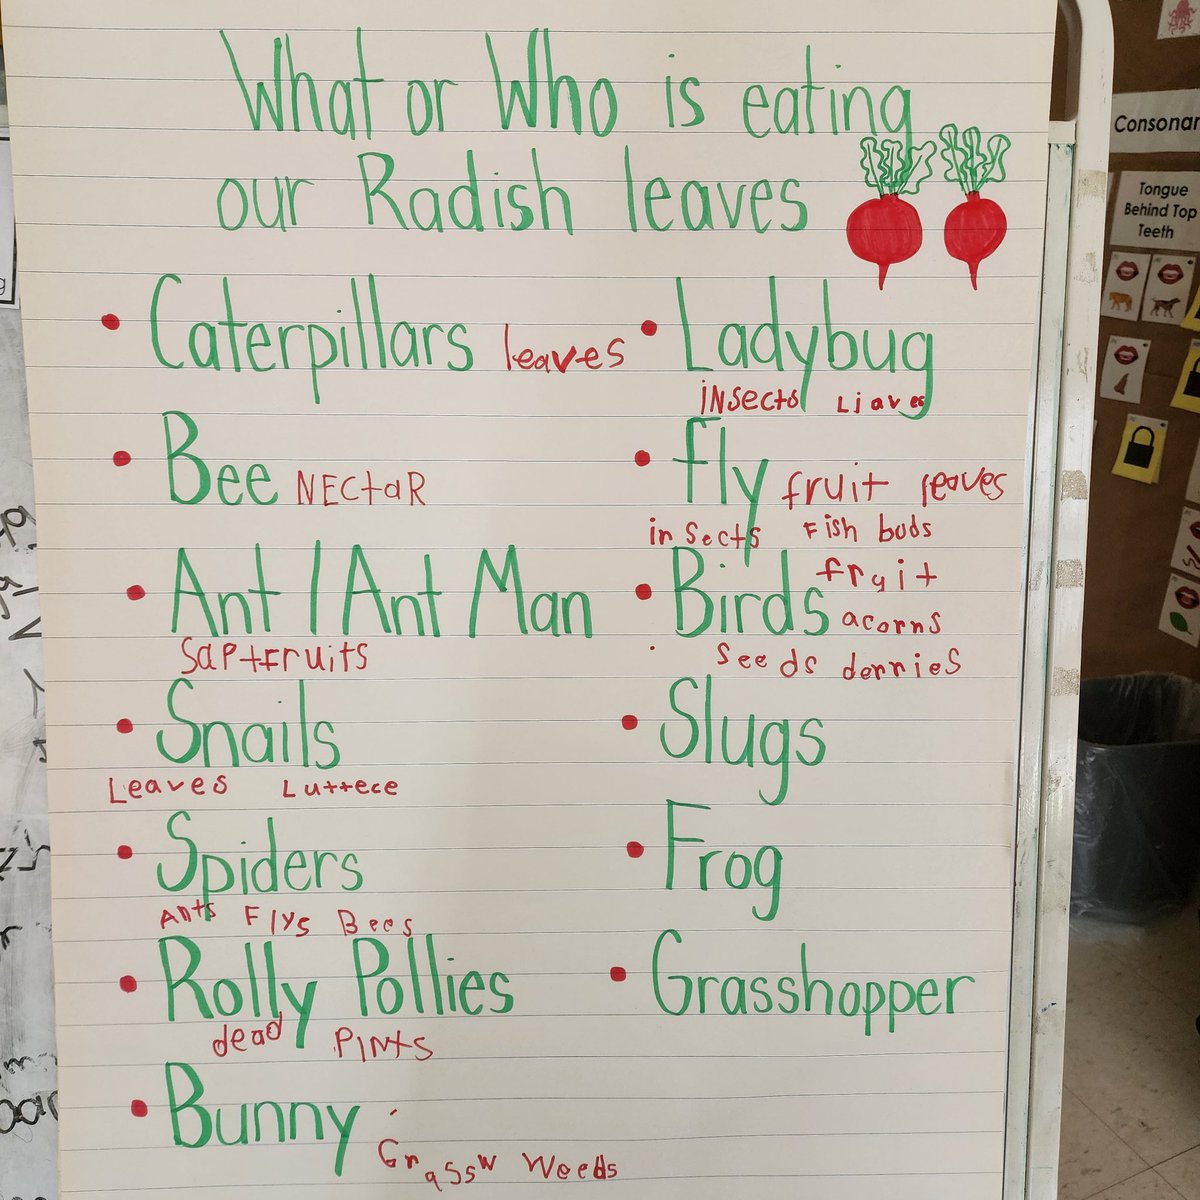 What or Who is eating
our Radish leaves
• Caterpillars leaves
• Bee NECtaR
• Ant / Ant Man
Sap+Fruits
• Snails
Leaves Luttece
• Spiders
Ants Flys Bees
• Rolly Pollies
dead PlNts
• Bunny
Grassw Weeds
• Ladybug
iNsects Liaves
• fly fruit leaves
insects Fish buds
fruit
• Birds acorns
seeds derries
• Slugs
• Frog
• Grasshopper
Consonan
Tongue
Behind Top
Teeth